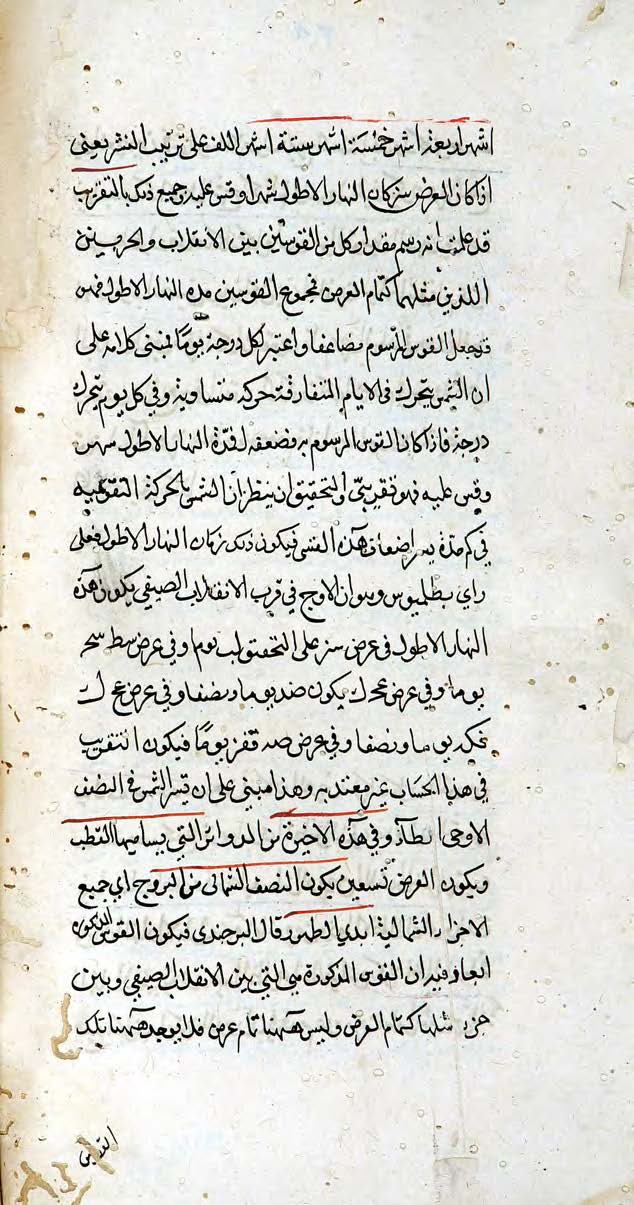 اشهر اربعة اشهر خمسة اشهر ستة اشهر اللف على ترتيب النشر يعنى
اذا كان العرض سز كان النهار الاطول شهرا وقس عليه وجميع ذلك بالتقريب
قد علمت انه رسم مقدار كل من القوسين بين الانقلاب والجزئين
اللذين مثلهما كتمام العرض فمجموع القوسين مدة النهار الاطول فهو
قد جعل القوس المرسوم مضاعفا واعتبر لكل درجة يوما فمبنى كلامه على
ان الشمس يتحرك فى الايام المتفارقة حركة متساوية وفي كل يوم يتحرك
درجة فاذا كان القوس المرسوم يه فضعفه ل فمدة النهار الاطول شهر
وقس عليه فهو تقريبى والتحقيق ان ينظر ان الشمس بالحركة التقويمية
في كم مدة يسير اضعاف هذه القسى فيكون ذلك زمان النهار الاطول فعلى
راي بطلميوس وهو ان الاوج في قرب الانقلاب الصيفي يكون هذه
النهار الاطول فى عرض سز على التحقيق لب يوم وفي عرض سط سحر
يوما وفي عرض عحك يكون صد يوما ونصفا وفي عرض عحك
قكد يوما ونصفا وفي عرض صه قفز يوما فيكون التقريب
في هذا الحساب غير معتد به وهذا مبني على ان سير الشمس في النصف
الاوجى ابطأ وفي هذه الاخيرة من الدوائر التي يسامتها القطب
ويكون العرض تسعين يكون النصف الشمالى من البروج اي جميع
الاجزاء الشمالية ابدي الظهور قال البرجندى فيكون القوس المذكورة
ابعا وفيه ان القوس المذكورة هي التي بين الانقلاب الصيفي وبين
جزء مثلها كتمام العرض وليس ههنا تمام عرض فلا يوجد ههنا تلك
القوس